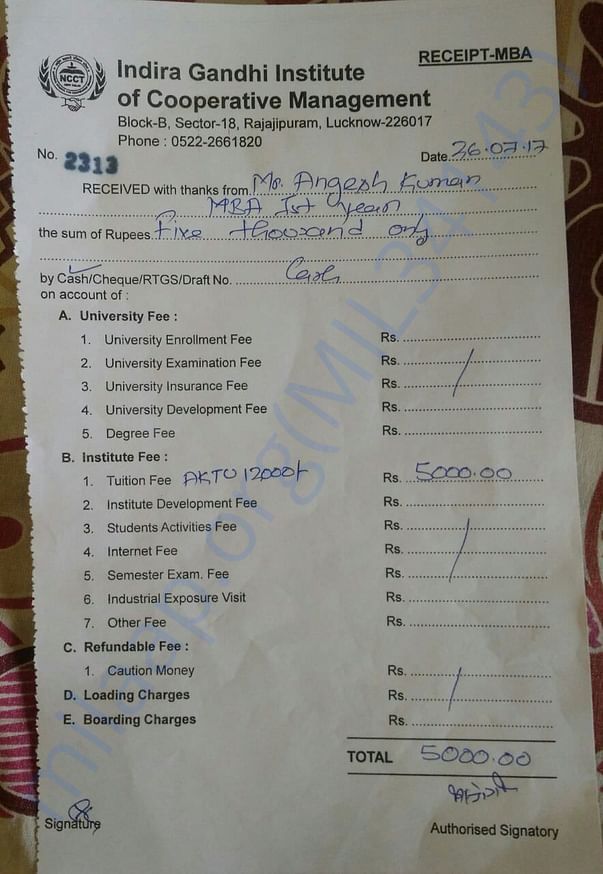 RECEIPT-MBA
NCCT
Indira Gandhi Institute
of Cooperative Management
Block-B, Sector-18, Rajajipuram, Lucknow-226017
Phone : 0522-2661820
No. 2313 Date 26.07.17
RECEIVED with thanks from Mr. Angesh Kumar
MBA Ist year
the sum of Rupees Five thousand only
by Cash/Cheque/RTGS/Draft No. Cash
on account of :
A. University Fee :
1. University Enrollment Fee Rs.
2. University Examination Fee Rs.
3. University Insurance Fee Rs.
4. University Development Fee Rs.
5. Degree Fee Rs.
B. Institute Fee :
1. Tuition Fee AKTU 12000/- Rs. 5000.00
2. Institute Development Fee Rs.
3. Students Activities Fee Rs.
4. Internet Fee Rs.
5. Semester Exam. Fee Rs.
6. Industrial Exposure Visit Rs.
7. Other Fee Rs.
C. Refundable Fee :
1. Caution Money Rs.
D. Loading Charges Rs.
E. Boarding Charges Rs.
TOTAL 5000.00
Signature
Authorised Signatory
milaap.org(MIL34143)